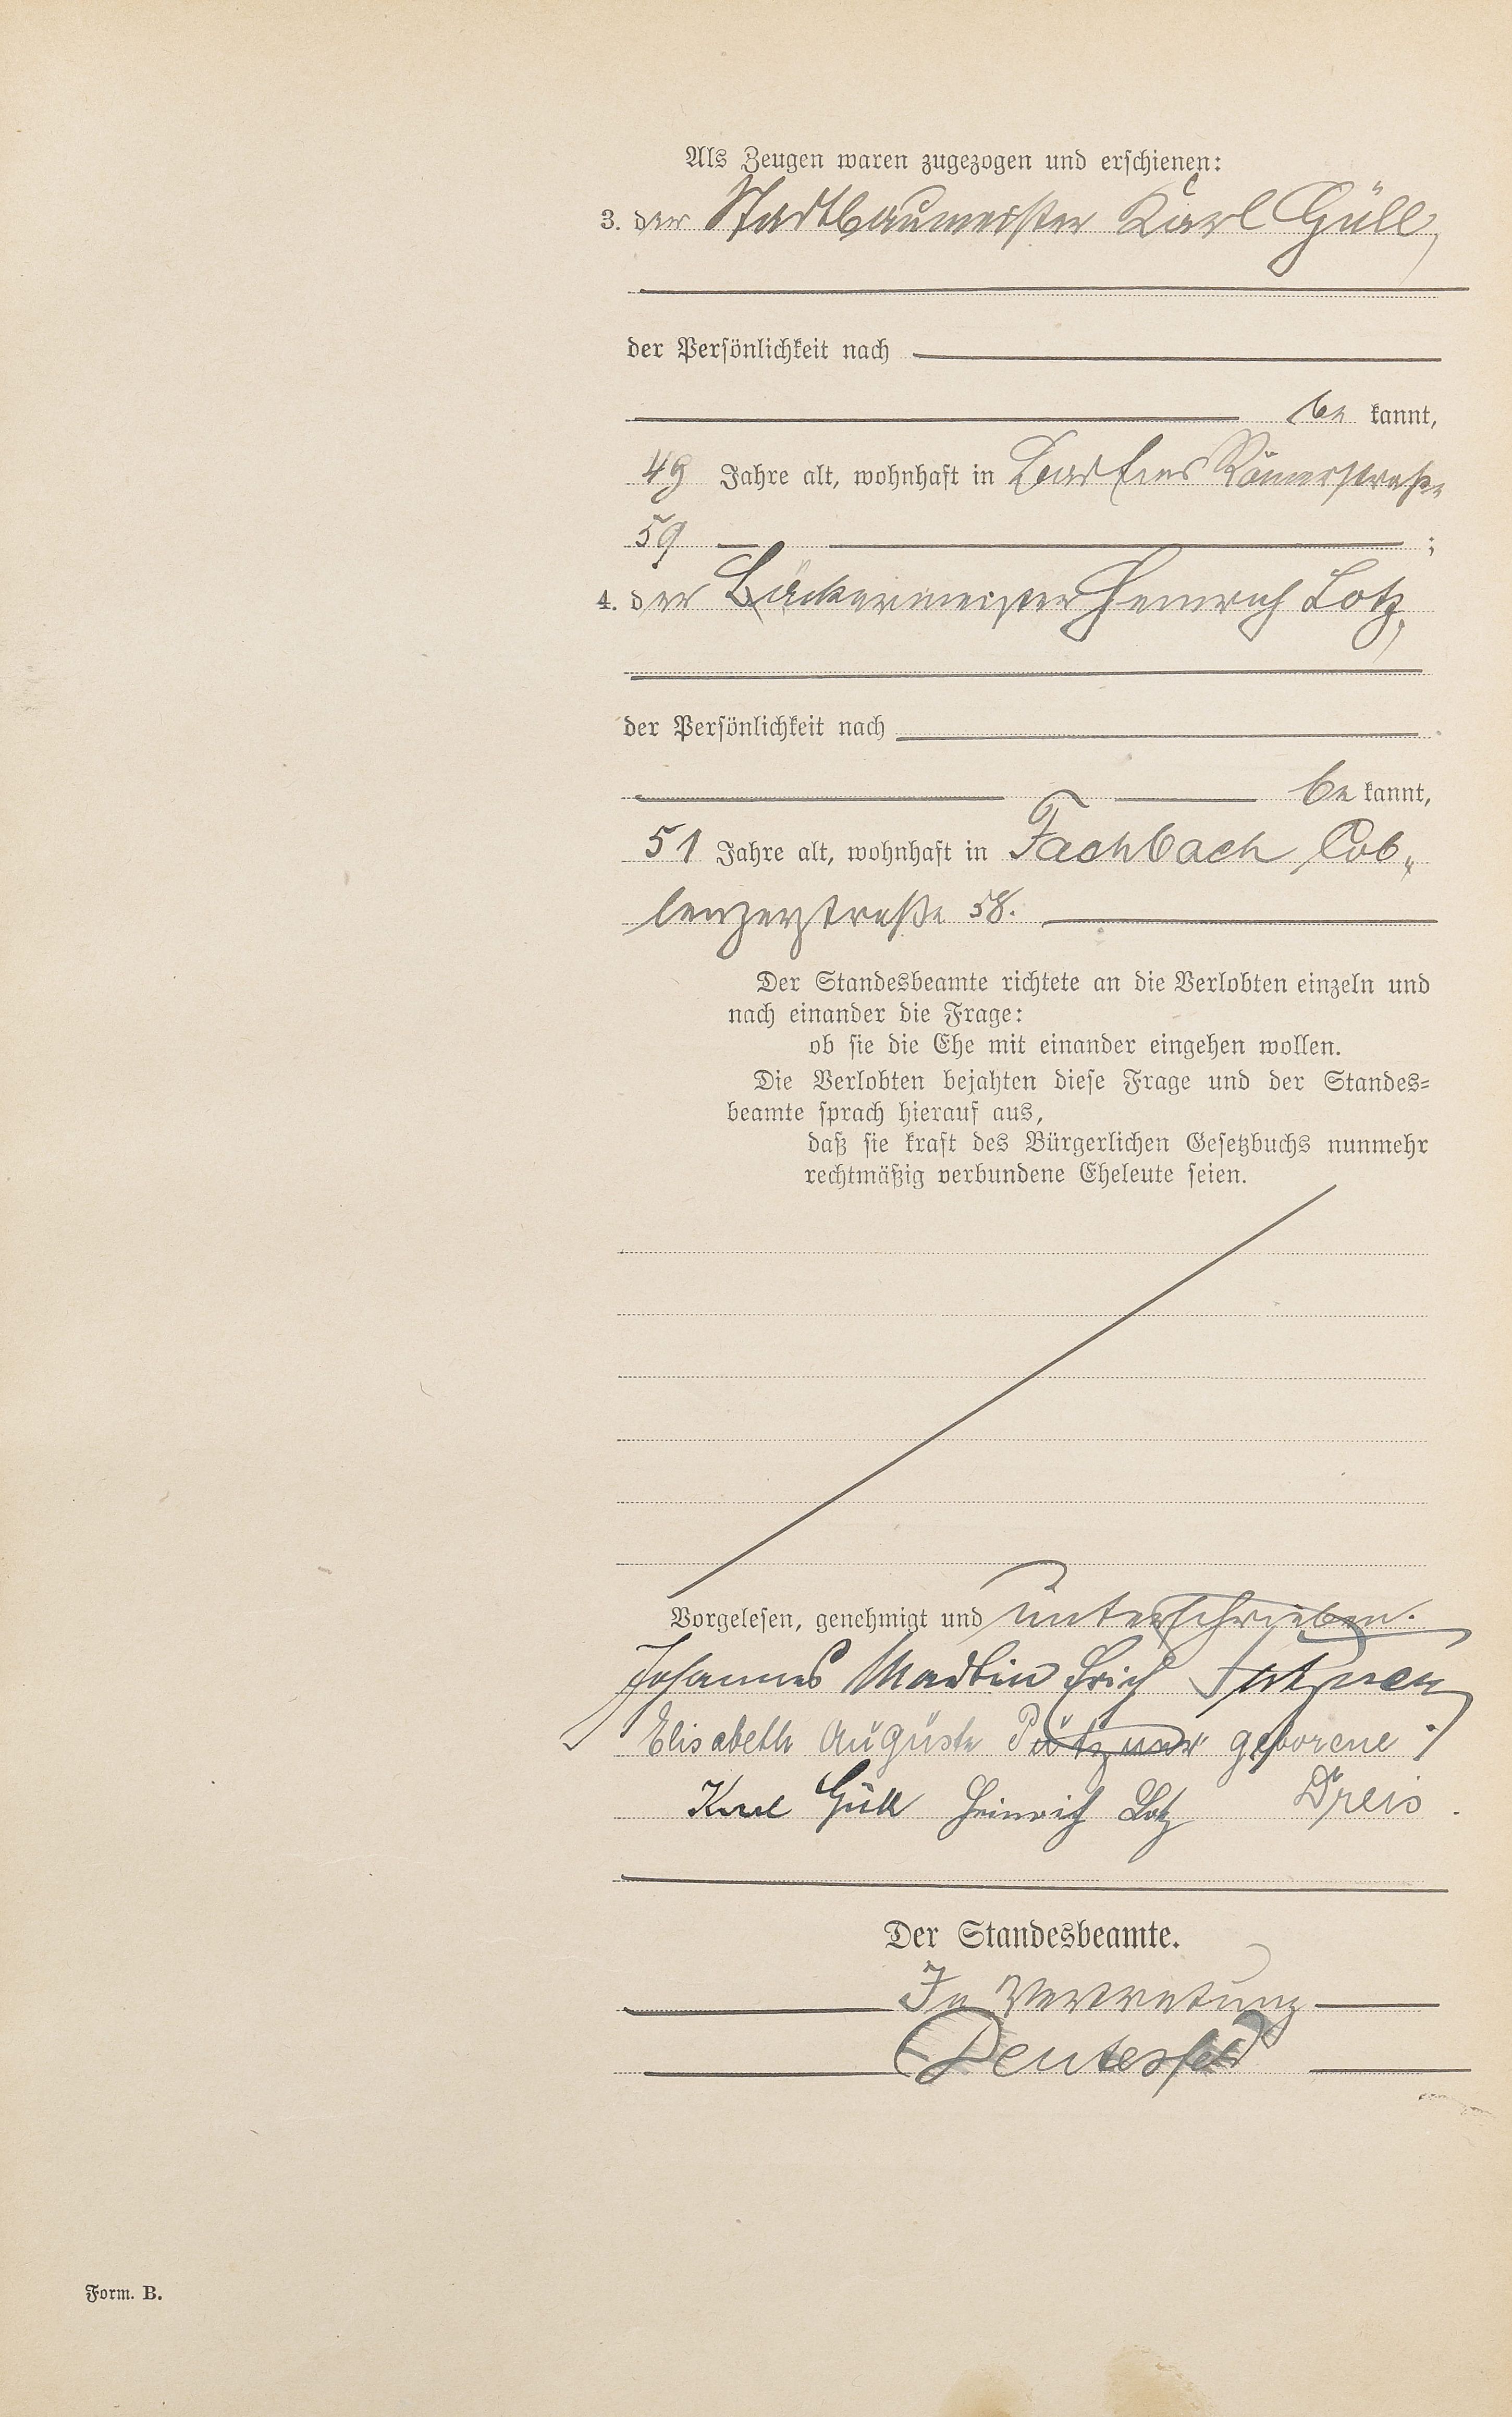 Als Zeugen waren zugezogen und erschienen:
3. der Stadtbaumeister Karl Güll,
der Persönlichkeit nach
be kannt,
49 Jahre alt, wohnhaft in Bad Ems Römerstraße
59 ;
4. der Bäckermeister Heinrich Lotz,
der Persönlichkeit nach
be kannt,
51 Jahre alt, wohnhaft in Fachbach Cob„
lenzerstraße 58.
Der Standesbeamte richtete an die Verlobten einzeln und
nach einander die Frage:
ob sie die Ehe mit einander eingehen wollen.
Die Verlobten bejahten diese Frage und der Standes=
beamte sprach hierauf aus,
daß sie kraft des Bürgerlichen Gesetzbuchs nunmehr
rechtmäßig verbundene Eheleute seien.
Vorgelesen, genehmigt und unterschrieben.
Johannes Martin Erich Pützner
Elisabeth Auguste Pützner geborene
Karl Güll Heinrich Lotz Dreis.
Der Standesbeamte.
In Vertretung
Deutesfeld
Form. B.